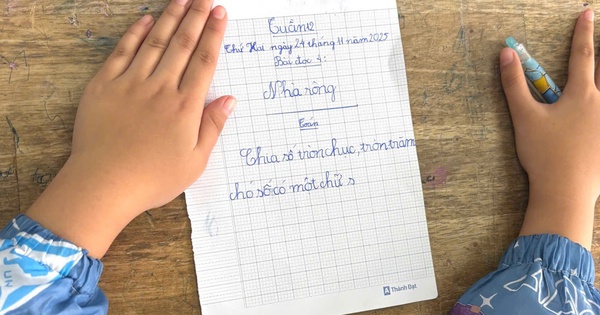 Tuần 12
Thứ Hai ngày 24 tháng 11 năm 2025
Bài đọc 4:
Nhà rông
Toán
Chia số tròn chục, tròn trăm
cho số có một chữ s
Thành Đạt